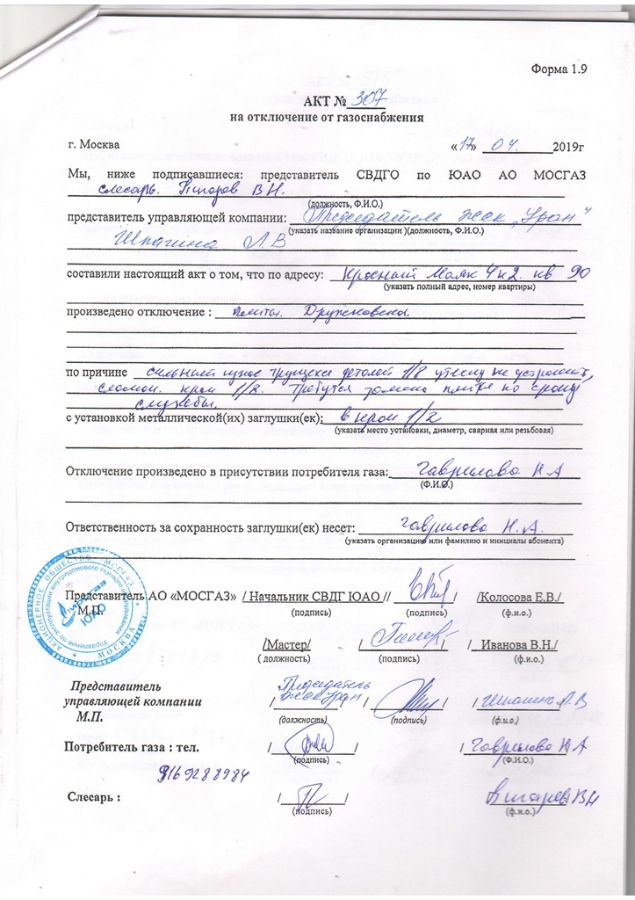 Форма 1.9
АКТ № 307
на отключение от газоснабжения
г. Москва «17» 04 2019г
Мы, ниже подписавшиеся: представитель СВДГО по ЮАО АО МОСГАЗ
слесарь. В Н.
(должность, Ф.И.О.)
представитель управляющей компании: Председатель жеск „Уран"
(указать название организации )(должность, Ф.И.О.)
Шпагина Л.В
составили настоящий акт о том, что по адресу: Красный Маяк 4к2. кв 90
(указать полный адрес, номер квартиры)
произведено отключение : плиты.
по причине сильный износ трущихся деталей 1/8 утечку не устранить,
сломан. кран 1/2. Требуется замена плиты по сроку
службы.
с установкой металлической(их) заглушки(ек): в кран 1/2
(указать место установки, диаметр, сварная или резьбовая)
Отключение произведено в присутствии потребителя газа: Гаврилова Н А
(Ф.И.О.)
Ответственность за сохранность заглушки(ек) несет: Гаврилова Н.А.
(указать организацию или фамилию и инициалы абонента)
Представитель АО «МОСГАЗ» / Начальник СВДГ ЮАО // / /Колосова Е.В./
М.П. (подпись) (ф.и.о.)
/Мастер/ / / Иванова В.Н./
( должность) (подпись) (ф.и.о.)
Представитель Председатель
управляющей компании / жеск Уран / / / / Л.В
М.П. (должность) (подпись) (ф.и.о.)
Потребитель газа : тел. / / / Гаврилова Н А
(подпись) (Ф.И.О.)
9169288984
Слесарь : / / В Н
(подпись) (ф.и.о.)
АКЦИОНЕРНОЕ ОБЩЕСТВО «МОСГАЗ»
МОСКВА
ЮАО